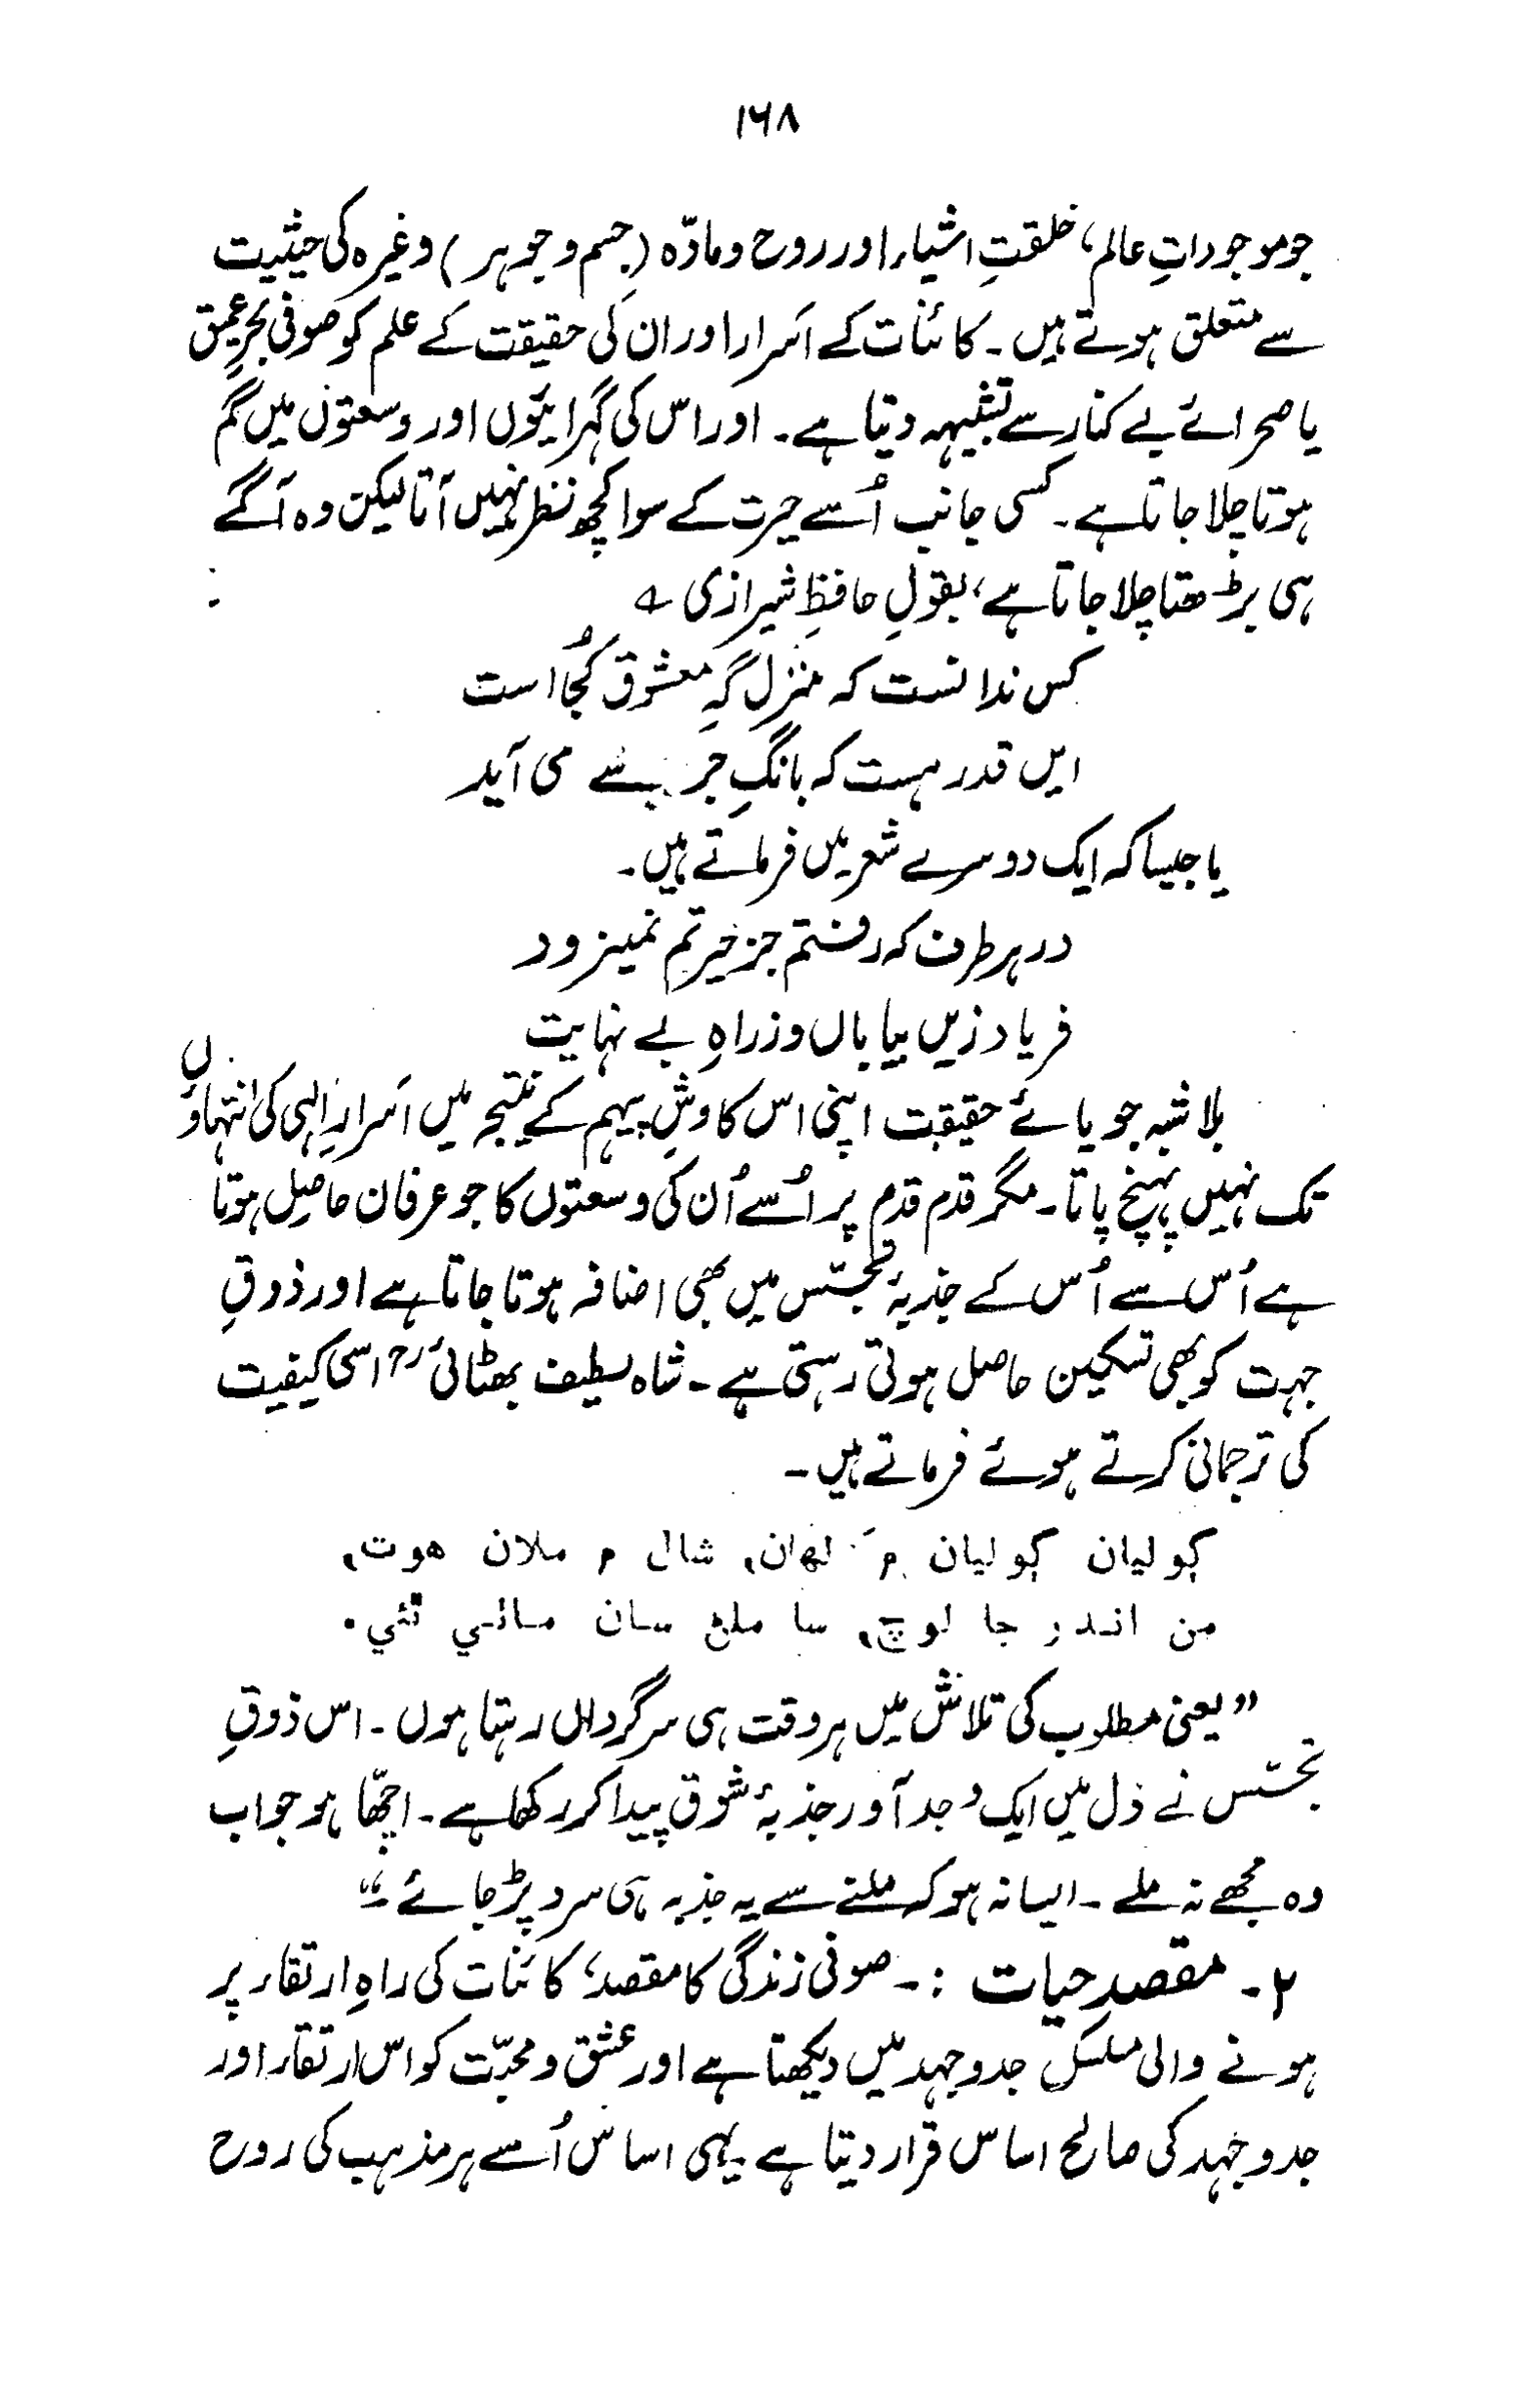 ۱۶۸
جو موجوداتِ عالم، خلقتِ اشیاء اور روح و مادّہ (جسم و جوہر) وغیرہ کی حیثیت
سے متعلق ہوتے ہیں۔ کائنات کے اَسرار اور ان کی حقیقت کے علم کو صوفی بحرِ عمیق
یا صحرائے بے کنار سے تشبیہہ دیتا ہے۔ اور اس کی گہرائیوں اور وسعتوں میں گم
ہوتا چلا جاتا ہے۔ کسی جانب اُسے حیرت کے سوا کچھ نظر نہیں آتا لیکن وہ آگے
ہی بڑھتا چلا جاتا ہے، بقولِ حافظِ شیرازی ؎
کس ندانست کہ منزل گہِ معشوق کُجا است
ایں قدر ہست کہ بانگِ جرسے می آید
یا جیسا کہ ایک دوسرے شعر میں فرماتے ہیں۔
در ہر طرف کہ رفتم جز حیرتم نمیزود
فریاد زیں بیاباں وز راہِ بے نہایت
بلا شبہ جویائے حقیقت اپنی اس کاوشِ پیہم کے نتیجہ میں اَسرارِ الٰہی کی انتہاؤں
تک نہیں پہنچ پاتا۔ مگر قدم قدم پر اُسے اُن کی وسعتوں کا جو عرفان حاصِل ہوتا
ہے اُس سے اُس کے جذبۂ تجسّس میں بھی اضافہ ہوتا جاتا ہے اور ذوقِ
جہرت کو بھی تسکین حاصل ہوتی رہتی ہے۔ شاہ لطیف بھٹائیؒ اسی کیفیت
کی ترجمانی کرتے ہوئے فرماتے ہیں۔
ڳوليان ڳوليان مَ لهان، شال م ملان هوت،
من اندر جا لوچ، سا ملڻ سان ماٺي ٿئي.
”یعنی مطلوب کی تلاش میں ہر وقت ہی سرگرداں رہتا ہوں۔ اس ذوقِ
تجسّس نے دل میں ایک وجد آور جذبۂ شوق پیدا کر رکھا ہے۔ اچھّا ہو جو اب
وہ مجھے نہ ملے۔ ایسا نہ ہو کہ ملنے سے یہ جذبہ ہی سرد پڑ جائے۔“
۲۔ مقصدِ حیات :۔ صوفی زندگی کا مقصد، کائنات کی راہِ ارتقاء پر
ہونے والی مسلسل جدوجہد میں دیکھتا ہے اور عشق و محبّت کو اس ارتقاء اور
جدوجہد کی صالح اساس قرار دیتا ہے۔ یہی اساس اُسے ہر مذہب کی روح